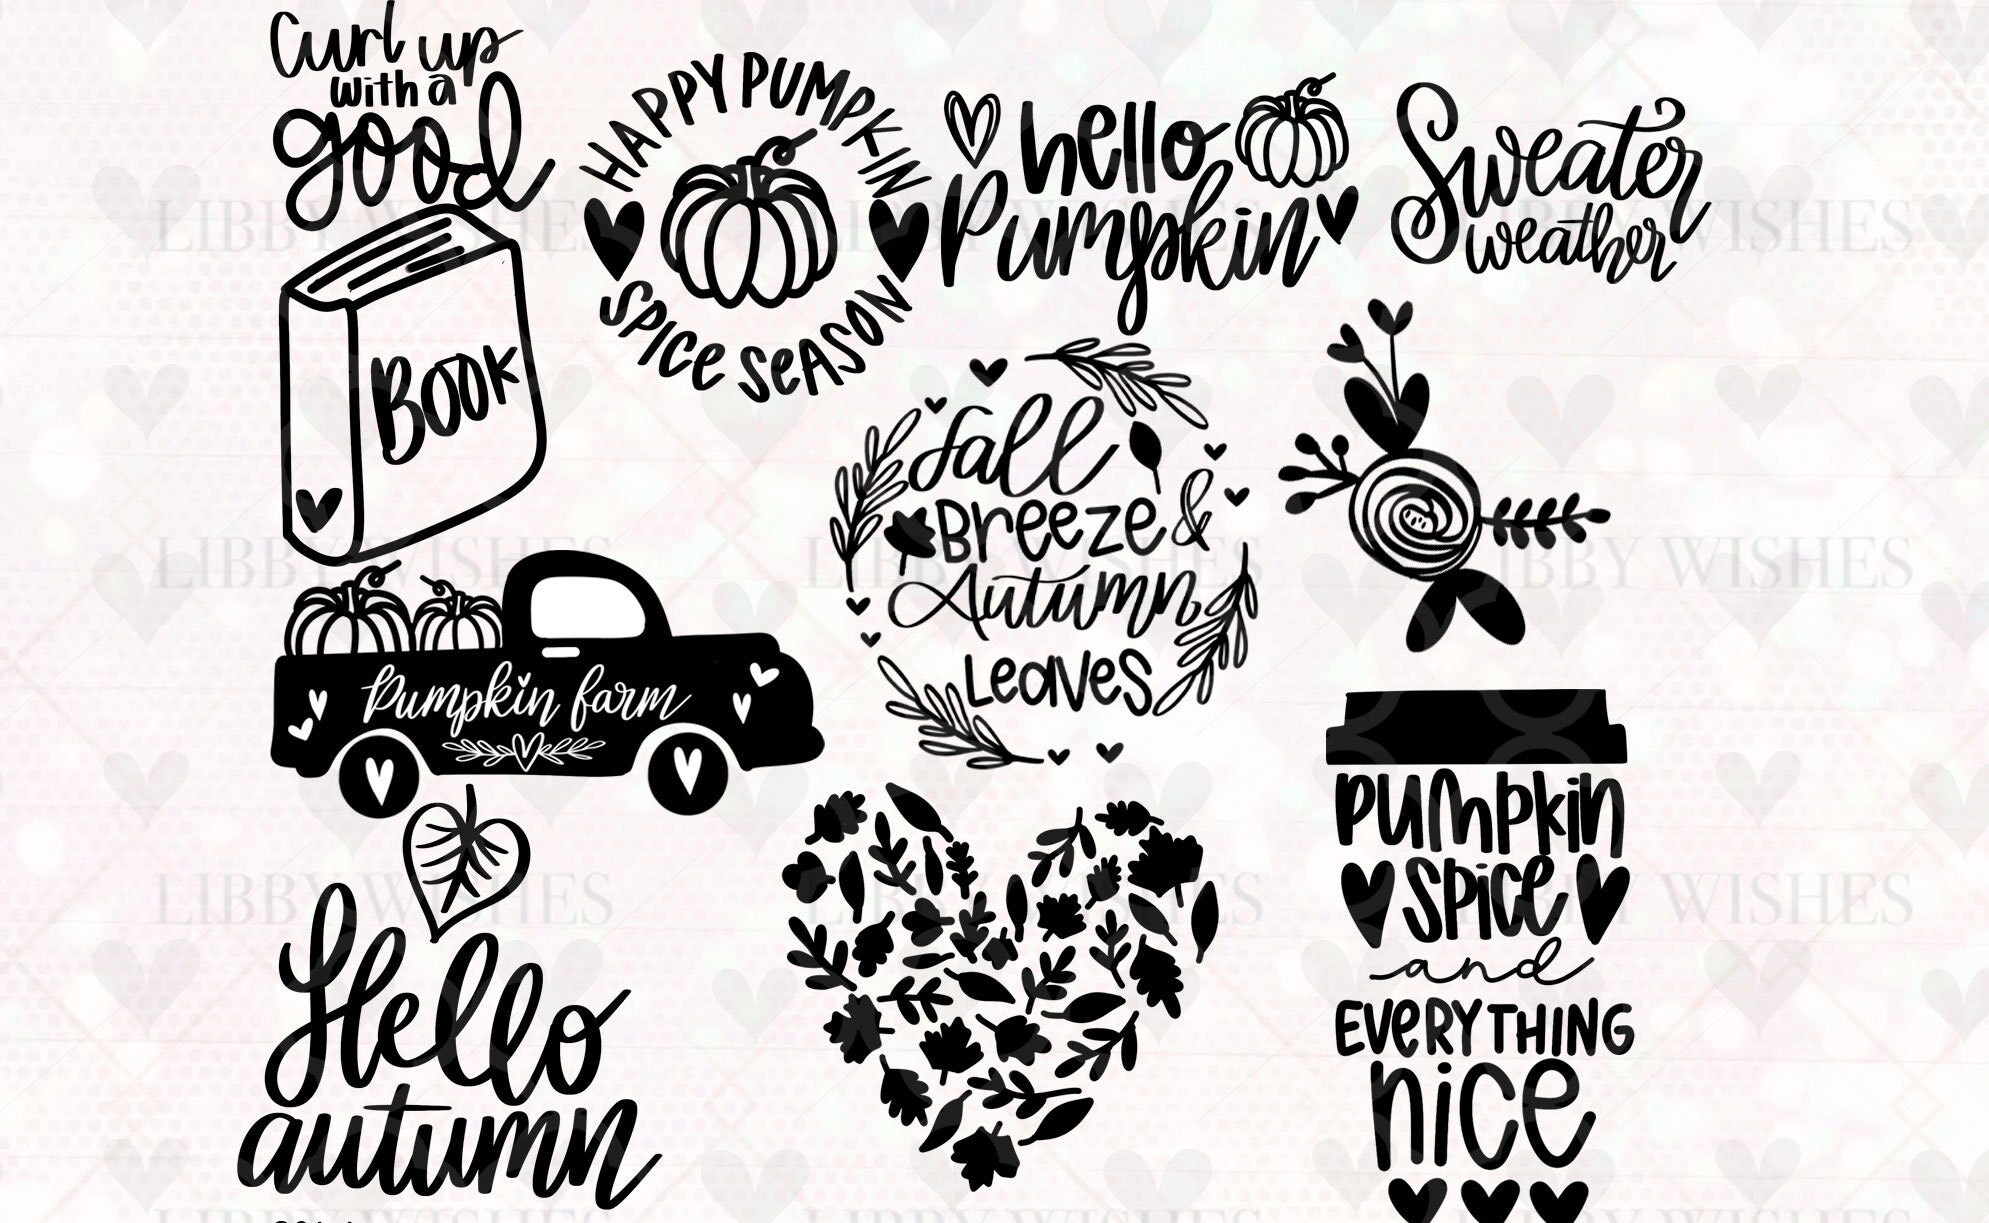 Curl up
with a
good
BOOK
HAPPY PUMPKIN
SPICE SEASON
hello
Pumpkin
Sweater
weather
fall
Breeze &
Autumn
Leaves
Pumpkin farm
Hello
autumn
PUMPKIN
SPICE
and
EVERYTHING
NICE
LIBBY WISHES
LIBBY WISHES
LIBBY WISHES
LIBBY WISHES
LIBBY WISHES
LIBBY WISHES
LIBBY WISHES
LIBBY WISHES
LIBBY WISHES